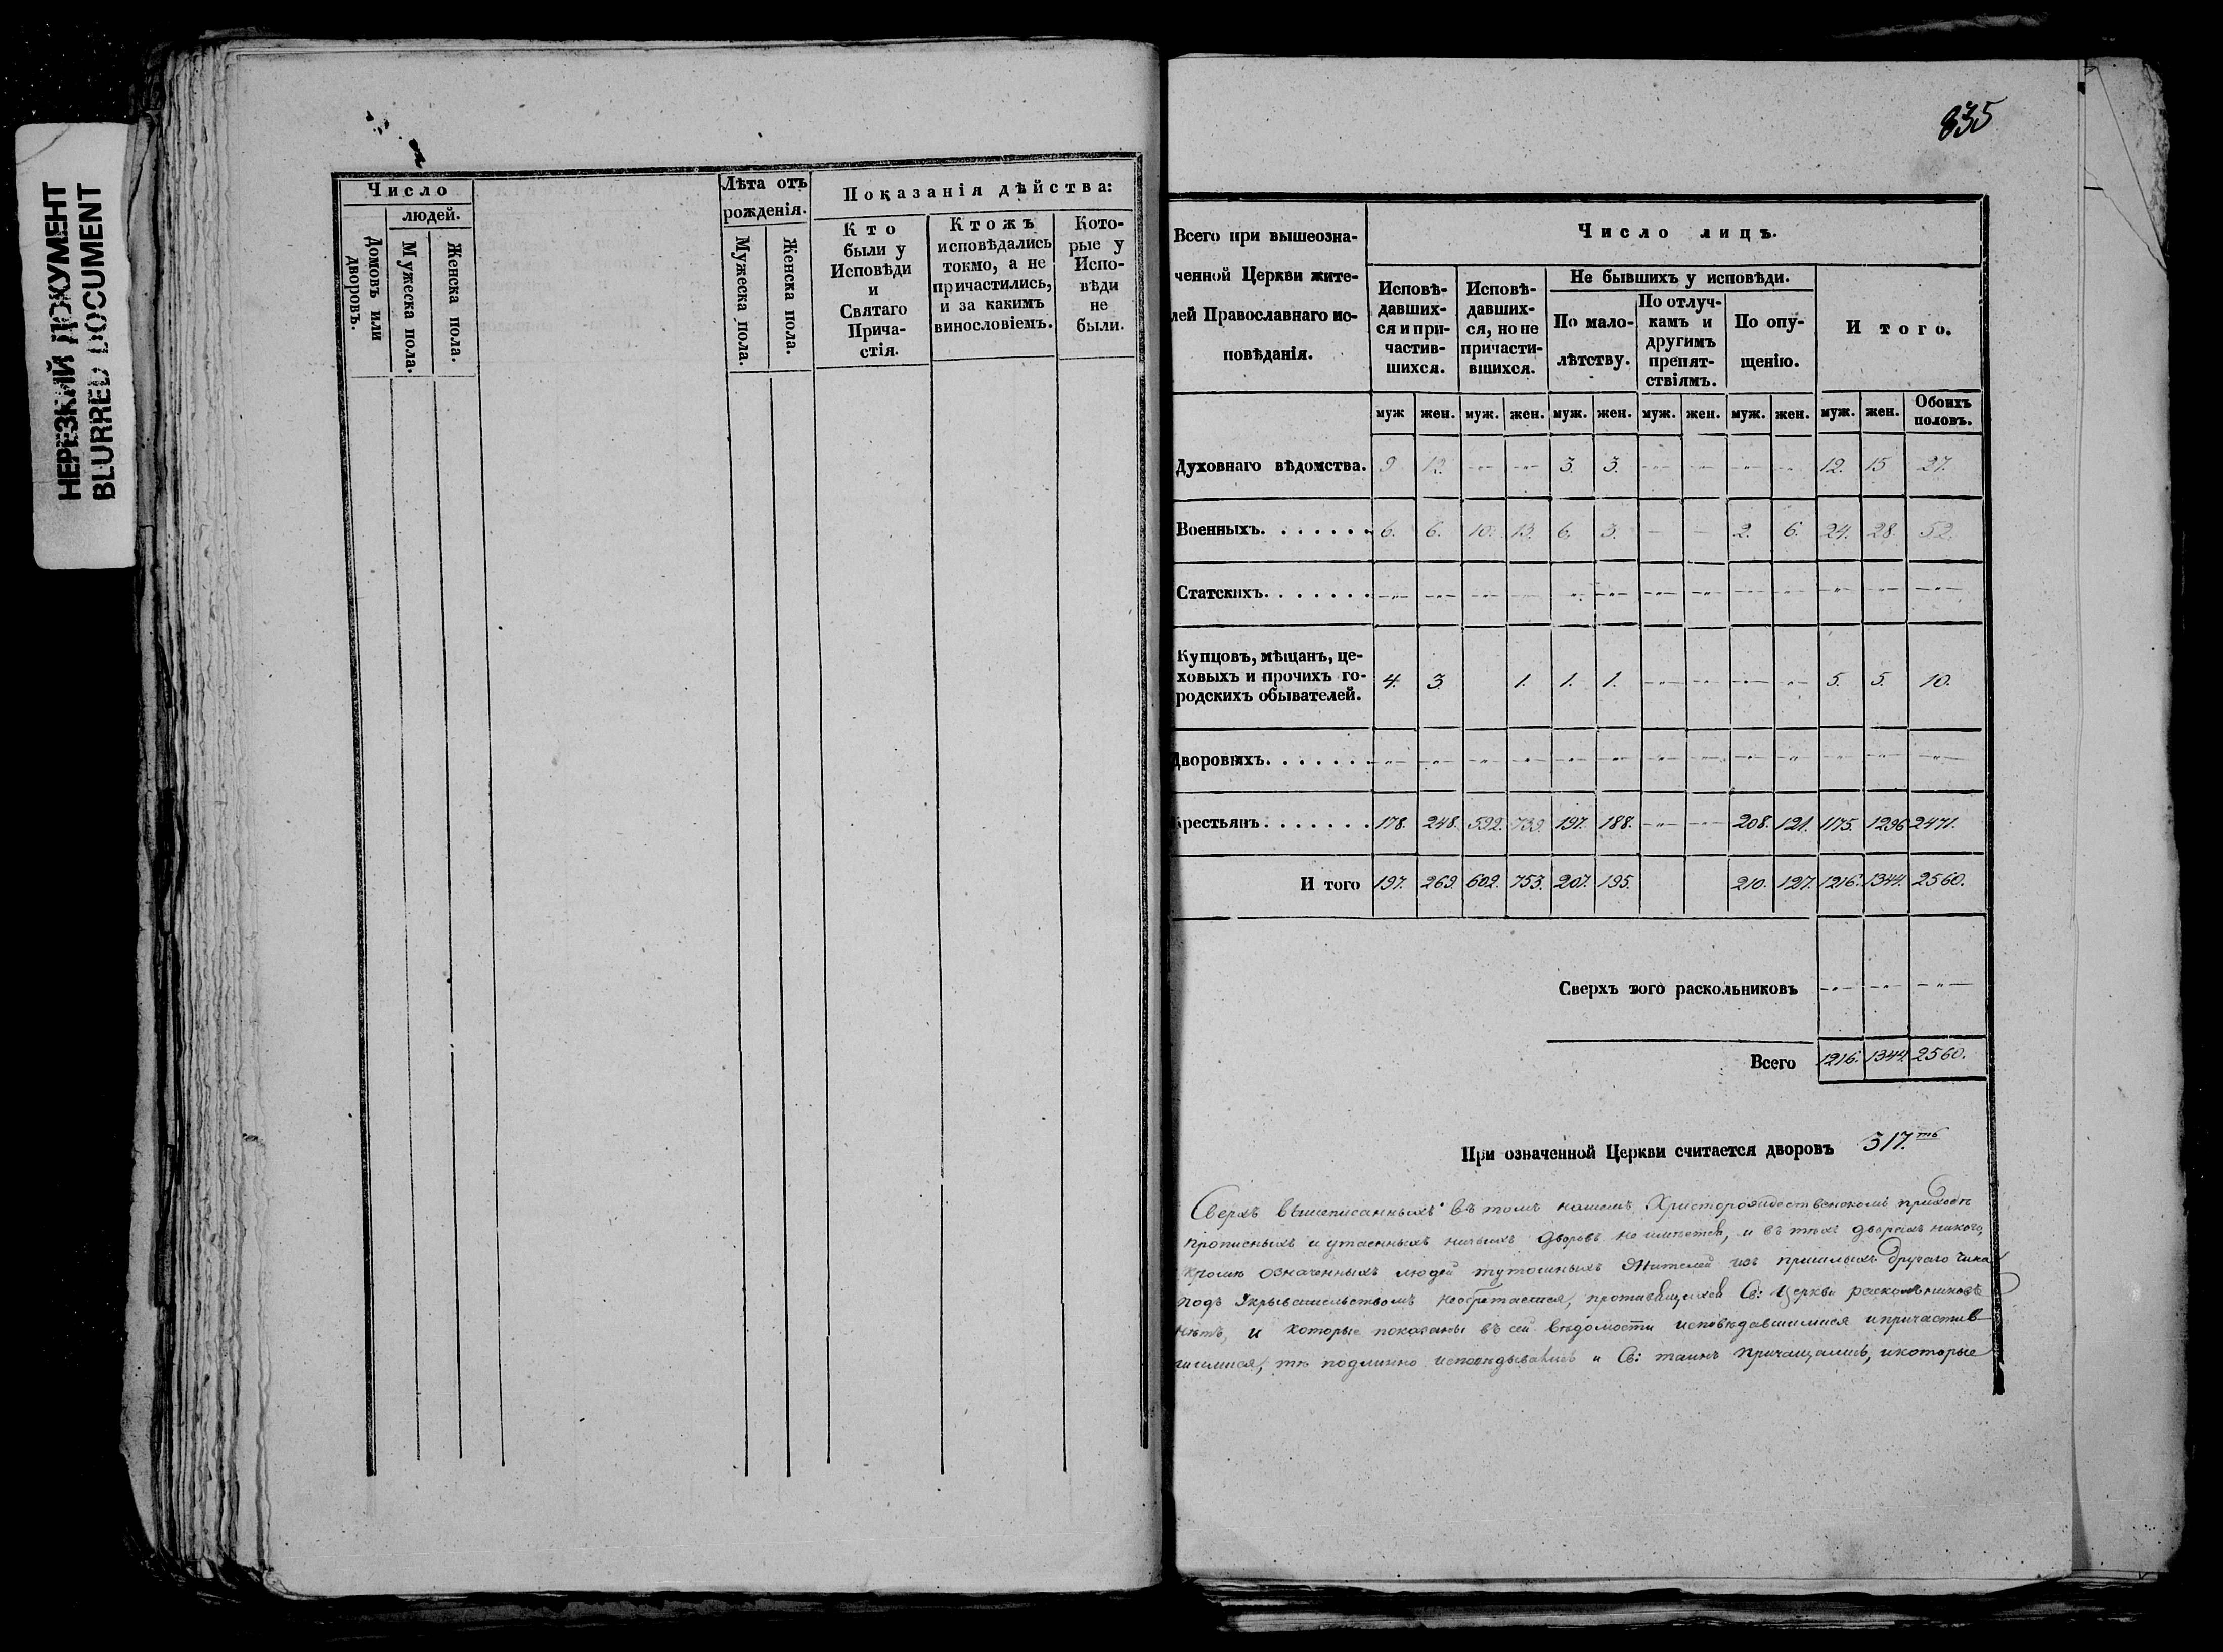 НЕРЕЗКИЙ ДОКУМЕНТ
BLURRED DOCUMENT
Число
людей.
Домовъ или дворовъ.
Мужеска пола.
Женска пола.
Лѣта отъ
рожденія.
Мужеска пола.
Женска пола.
Показанія дѣйства:
Кто
были у
Исповѣди
и
Святаго
Прича-
стія.
Ктожъ
исповѣдались
токмо, а не
причастились,
и за какимъ
винословіемъ.
Кото-
рые у
Испо-
вѣди
не
были.
835
Всего при вышеозна-
ченной Церкви жите-
лей Православнаго ис-
повѣданія.
Число лицъ.
Исповѣ-
давших-
ся и при-
частив-
шихся.
Исповѣ-
давших-
ся, но не
причасти-
вшихся.
Не бывшихъ у исповѣди.
По мало-
лѣтству.
По отлуч-
камъ и
другимъ
препят-
ствіямъ.
По опу-
щенію.
И того.
муж жен. муж. жен. муж. жен. муж. жен. муж. жен. муж. жен. Обоихъ половъ.
Духовнаго вѣдомства. 9 12. —„— —„— 3. 3. —„— —„— —„— —„— 12. 15 27.
Военныхъ. . . . . . . 6. 6. 10. 13. 6. 3. — — 2. 6. 24. 28. 52.
Статскихъ. . . . . . . —„— —„— —„— —„— —„— —„— —„— —„— —„— —„— —„— —„— —„—
Купцовъ, мѣщанъ, це-
ховыхъ и прочихъ го-
родскихъ обывателей. 4. 3. 1. 1. 1. —„— —„— —„— —„— 5. 5. 10.
Дворовыхъ. . . . . . . —„— —„— —„— —„— —„— —„— —„— —„— —„— —„— —„— —„— —„—
Крестьянъ. . . . . . . 178. 248. 592. 739. 197. 188. —„— —„— 208. 121. 1175. 1296 2471.
И того 197. 269. 602. 753. 207. 195. 210. 127. 1216. 1344. 2560.
Сверхъ того раскольниковъ —„— —„— —„—
Всего 1216. 1344. 2560.
При означенной Церкви считается дворовъ 317.ть
Сверхъ вышеписанныхъ въ томъ нашемъ Христорождественскомъ приходѣ
прописныхъ и утаенныхъ ничьихъ дворовъ не имѣется, и въ тѣхъ дворахъ никого,
кромѣ означенныхъ людей тутошныхъ Жителей изъ пришлыхъ другаго чина
подъ Укрывательствомъ необретается, противящихся Св: Церкви раскольниковъ
нѣтъ, и которые показаны въ сей вѣдомости исповѣдавшимися и причастив-
шимися, тѣ подлинно исповѣдывались и Св: таинъ причащались, и которые